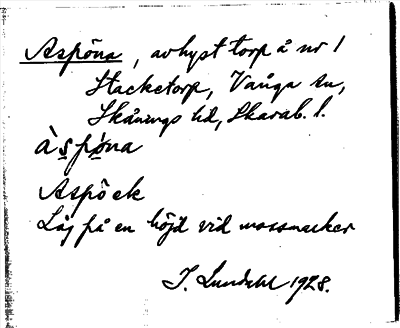 Aspöna, avhyst torp å nr 1
Stacketorp, Vånga sn,
Skånings hd, Skarab. l.
àspöna
Aspöek
Låg på en höjd vid mossmarker
I. Lundahl 1928.